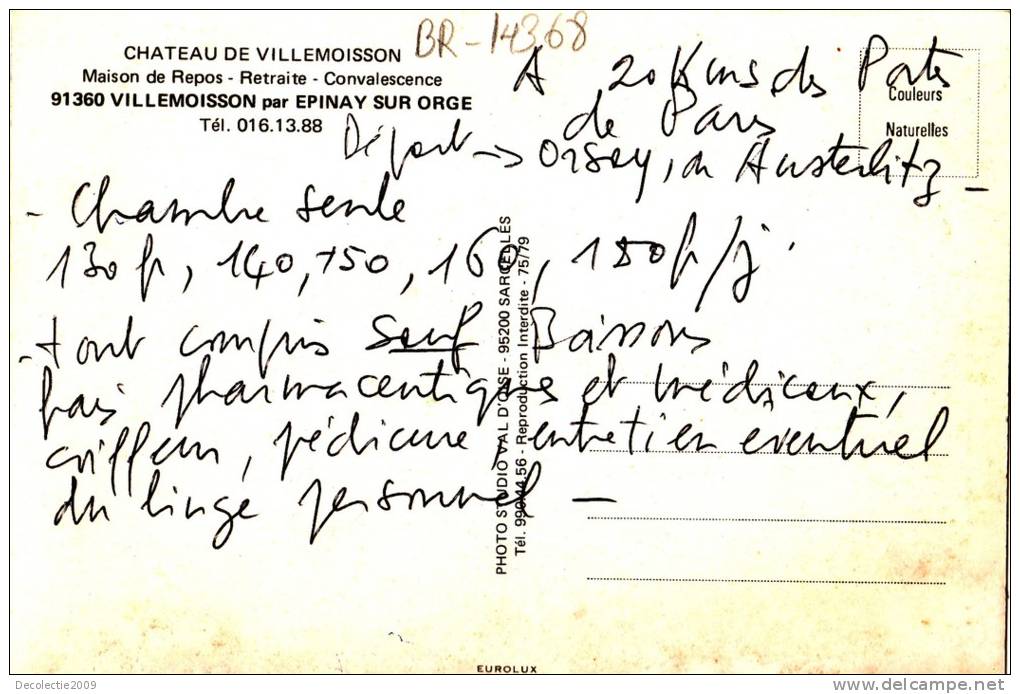 BR-14368
CHATEAU DE VILLEMOISSON
Maison de Repos - Retraite - Convalescence
91360 VILLEMOISSON par EPINAY SUR ORGE
Tél. 016.13.88
A 20 Kms des Portes
de Paris
Départ → Orsay, ou Austerlitz -
Couleurs
Naturelles
- Chambre seule
130 fr, 140, 150, 160, 180 fr/j.
- tout compris sauf Boissons
frais pharmaceutiques et médicaux,
coiffeur, pédicure, entretien eventuel
du linge personnel -
PHOTO STUDIO VAL D'OISE - 95200 SARCELLES
Tél. 990.44.56 - Reproduction Interdite - 75/79
EUROLUX
Decolectie2009
www.delcampe.net